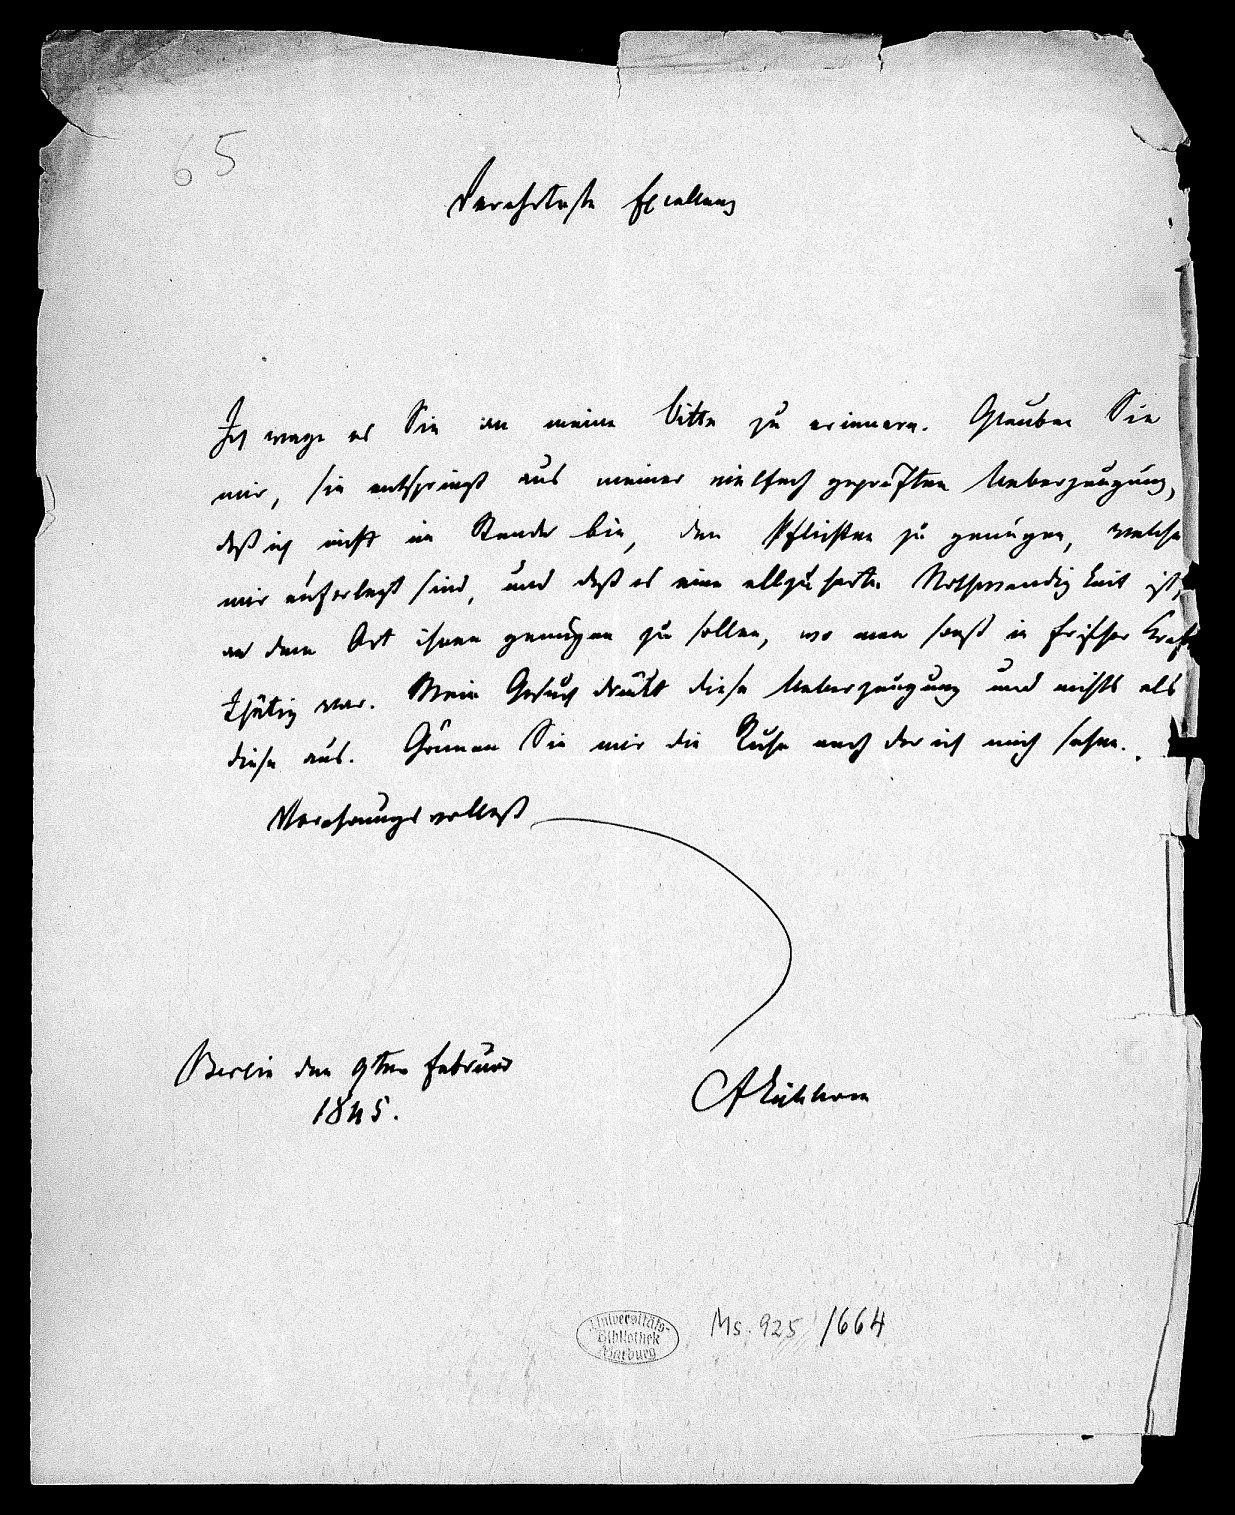 65
Verehrteste Excellenz
Ich wage es Sie an meine Bitte zu erinnern. Glauben Sie
mir, sie entspringt aus meiner vielfach geprüften Ueberzeugung,
daß ich nicht im Stande bin, den Pflichten zu genügen, welche
mir auferlegt sind, und daß es eine allzu harte Nothwendigkeit ist,
an dem Ort ihnen genügen zu sollen, wo man sonst in frischer Kraft
thätig war. Mein Gesuch drückt diese Ueberzeugung und nichts als
diese aus. Gönnen Sie mir die Ruhe nach der ich mich sehne.
Verehrungsvollest
Berlin den 9ten Februar
1845.
Ms. 925/1664
Universitäts-
Bibliothek
Marburg